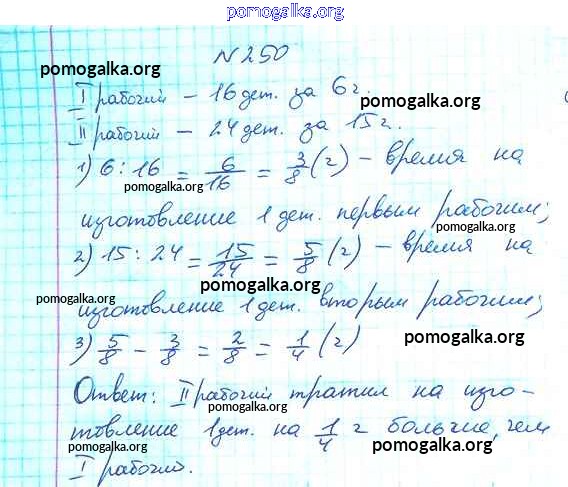 pomogalka.org
N 250
pomogalka.org
I рабочий – 16 дет. за 6 ч.
pomogalka.org
II рабочий – 24 дет. за 15 ч.
1) 6 : 16 = 6/16 = 3/8 (ч) – время на
pomogalka.org
изготовление 1 дет. первым рабочим;
pomogalka.org
2) 15 : 24 = 15/24 = 5/8 (ч) – время на
pomogalka.org
изготовление 1 дет. вторым рабочим;
pomogalka.org
3) 5/8 – 3/8 = 2/8 = 1/4 (ч)
pomogalka.org
Ответ: II рабочий тратил на изго-
pomogalka.org
товление 1 дет. на 1/4 ч больше, чем
pomogalka.org
I рабочий.